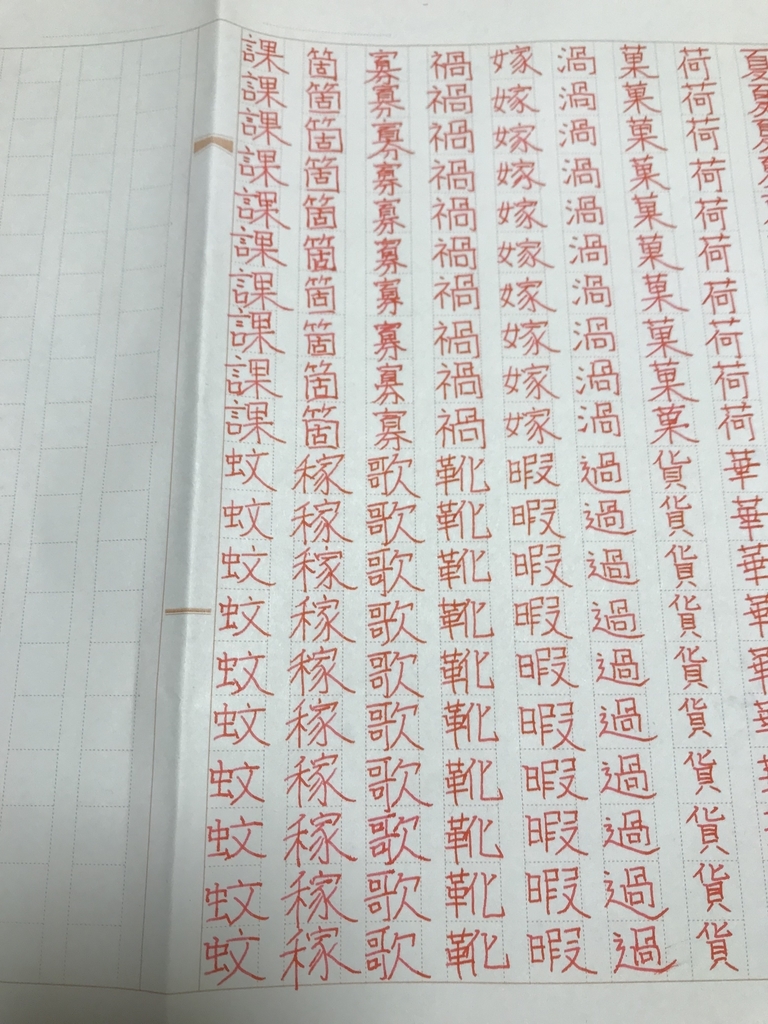 夏夏夏夏華華華華華華
荷荷荷荷荷荷荷荷荷荷貨貨貨貨貨貨貨貨貨貨
菓菓菓菓菓菓菓菓菓菓過過過過過過過過過過
渦渦渦渦渦渦渦渦渦渦暇暇暇暇暇暇暇暇暇暇
嫁嫁嫁嫁嫁嫁嫁嫁嫁嫁靴靴靴靴靴靴靴靴靴靴
禍禍禍禍禍禍禍禍禍禍歌歌歌歌歌歌歌歌歌歌
寡寡寡寡寡寡寡寡寡寡稼稼稼稼稼稼稼稼稼稼
箇箇箇箇箇箇箇箇箇箇蚊蚊蚊蚊蚊蚊蚊蚊蚊蚊
課課課課課課課課課課